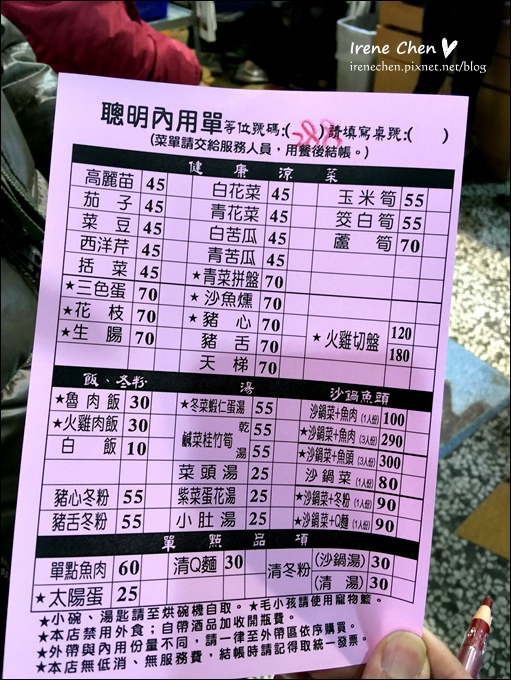 Irene Chen
irenechen.pixnet.net/blog
聰明內用單等位號碼:( )請填寫桌號:( )
(菜單請交給服務人員，用餐後結帳。)
健康涼菜
高麗苗 45 白花菜 45 玉米筍 55
茄子 45 青花菜 45 筊白筍 55
菜豆 45 白苦瓜 45 蘆筍 70
西洋芹 45 青苦瓜 45
括菜 45 ★青菜拼盤 70
★三色蛋 70 ★沙魚燻 70
★花枝 70 ★豬心 70 ★火雞切盤 120
★生腸 70 豬舌 70 180
天梯 70
飯、冬粉 湯 沙鍋魚頭
★魯肉飯 30 ★冬菜蝦仁蛋湯 55 沙鍋菜+魚肉(1人份) 100
★火雞肉飯 30 鹹菜桂竹筍 乾 55 ★沙鍋菜+魚肉(3人份) 290
白飯 10 湯 55 ★沙鍋菜+魚頭(3人份) 300
菜頭湯 25 沙鍋菜(1人份) 80
豬心冬粉 55 紫菜蛋花湯 25 ★沙鍋菜+冬粉(1人份) 90
豬舌冬粉 55 小肚湯 25 ★沙鍋菜+Q麵(1人份) 90
單點品項
單點魚肉 60 清Q麵 30 清冬粉 (沙鍋湯) 30
★太陽蛋 25 (清湯) 30
★小碗、湯匙請至烘碗機自取。★毛小孩請使用寵物籃。
★本店禁用外食；自帶酒品加收開瓶費。
★外帶與內用份量不同，請一律至外帶區依序購買。
★本店無低消、無服務費，結帳時請記得取統一發票。